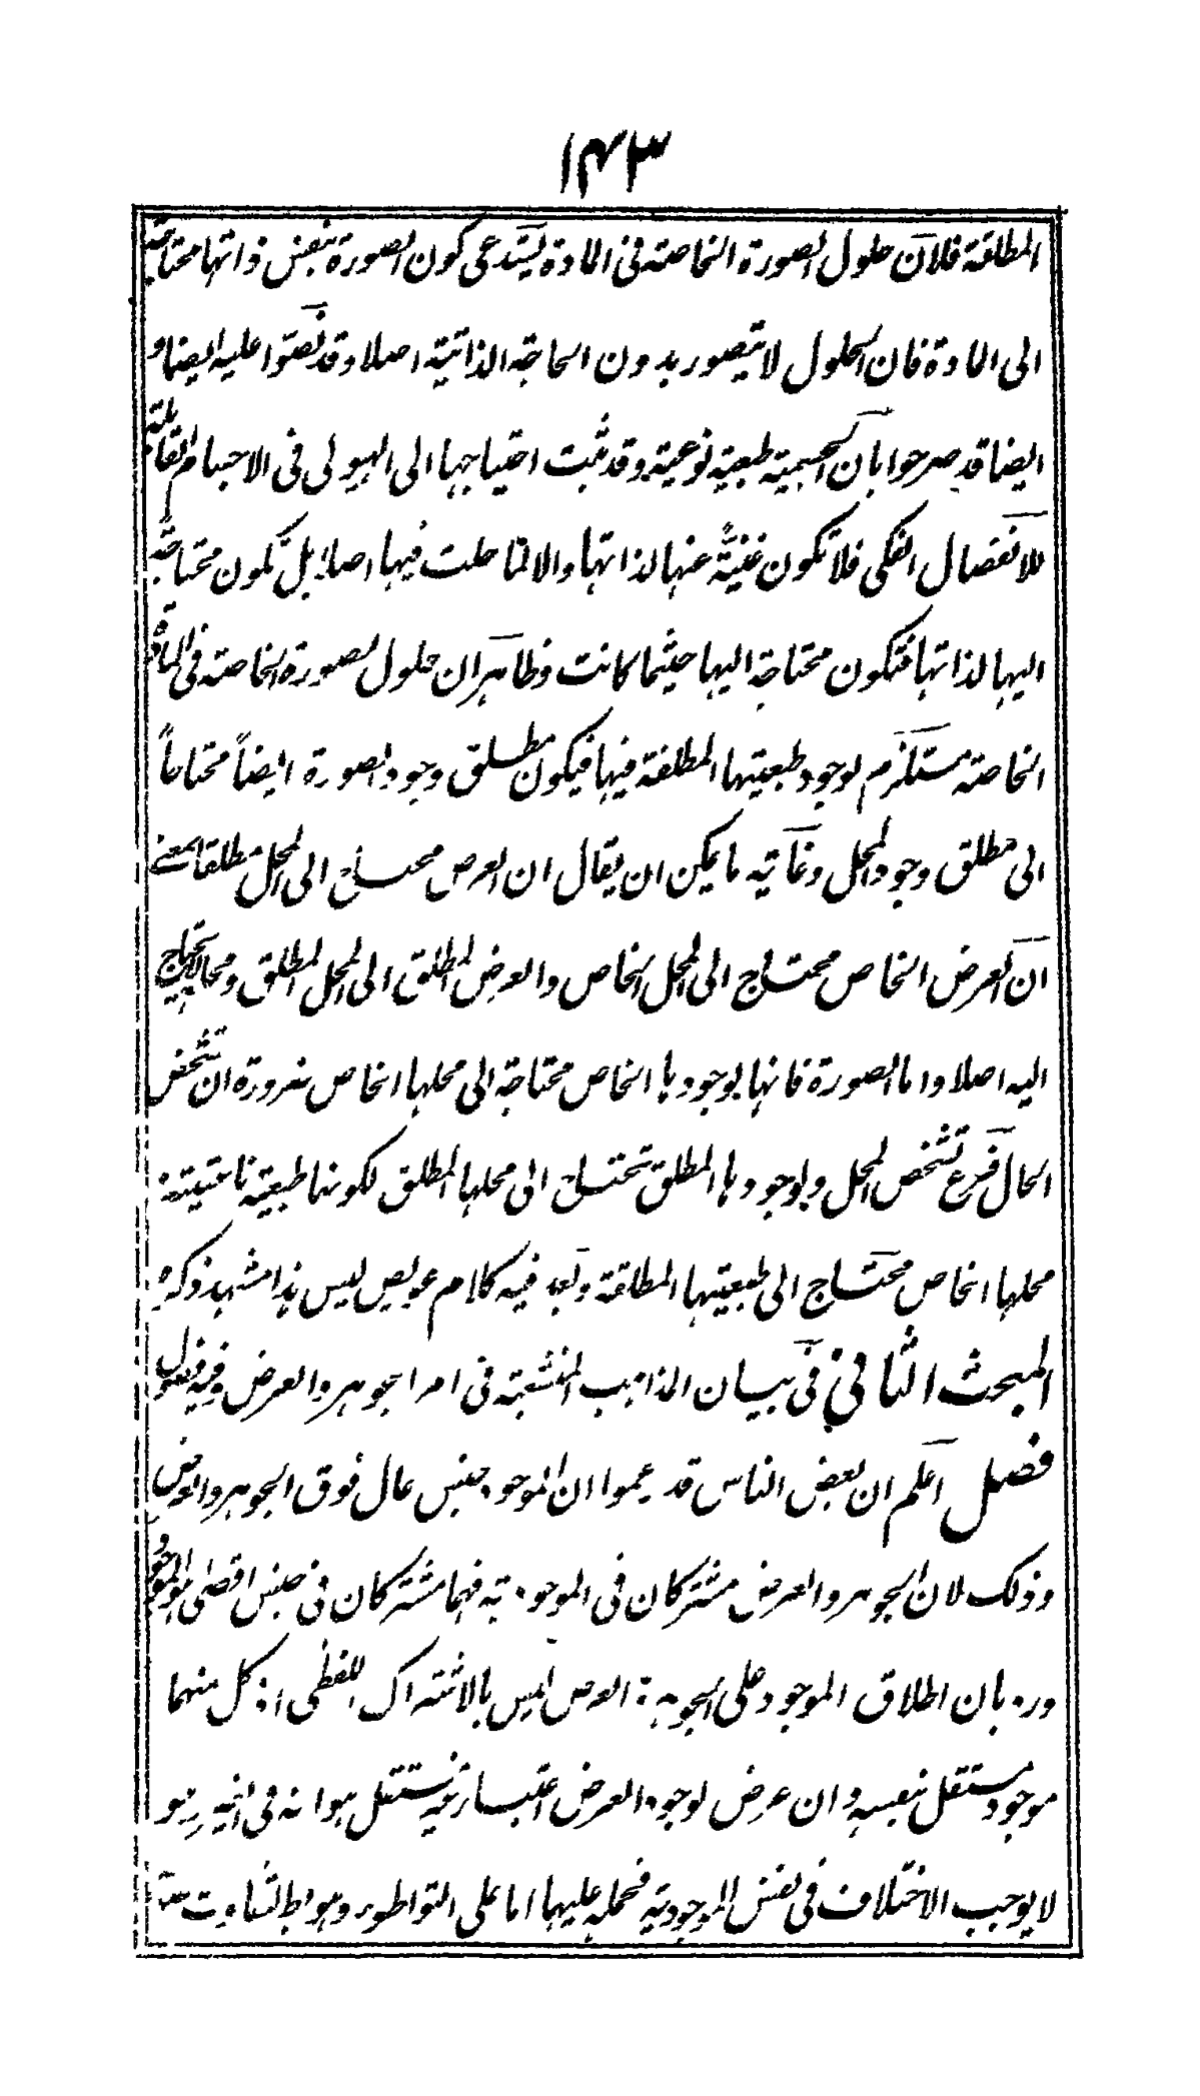 ١٤٣
المطلقة فلان حلول الصورة الخاصة في المادة يستدعى كون الصورة بنفس ذاتها محتاجة
الى المادة فان الحلول لا يتصور بدون الحاجة الذاتية اصلا وقد نصّوا عليه ايضا و
ايضا قد صرحوا بان الجسمية طبعية نوعية وقد ثبت احتياجها الى الهيولى في الاجسام القابلة
للانفصال الفكى فلا تكون غنيّةً عنها لذاتها والا لما حلت فيها اصلا بل تكون محتاجةً
اليها لذاتها فتكون محتاجة اليها حيثما كانت وظاهر ان حلول الصورة الخاصة في المادة
الخاصة مستلزم لوجود طبعيتها المطلقة فيها فيكون مطلق وجود الصورة ايضاً محتاجاً
الى مطلق وجود المحل وغاية ما يمكن ان يقال ان العرض محتاج الى المحل مطلقا بمعنى
ان العرض الخاص محتاج الى المحل الخاص والعرض المطلق الى المحل المطلق ومحالها لا يحتاج
اليه اصلا واما الصورة فانها بوجودها الخاص محتاجة الى محلها الخاص ضرورة ان تشخص
الحال فرع تشخص المحل وبوجودها المطلق تحتاج الى محلها المطلق لكونها طبعية ناعتية
محلها الخاص محتاج الى طبعيتها المطلقة وبعد فيه كلام عويص ليس هذا مشهد ذكره
المبحث الثاني في بيان المذاهب المنشعبة في امر الجوهر والعرض وفيه فصول
فصل اعلم ان بعض الناس قد عموا ان الموجود جنس عال فوق الجوهر والعرض
وذلك لان الجوهر والعرض مشتركان في الموجودية فهما مشتركان في جنس اقصى هو الموجود
ورد بان اطلاق الموجود على الجوهر والعرض ليس بالاشتراك اللفظى اذ كل منهما
موجود مستقل بنفسه وان عرض لوجود العرض اعتبار غير مستقل هو انه في الغير وهو
لا يوجب الاختلاف في نفس الموجودية فحمله عليها اما على التواطوء وهو بط لتفاوت